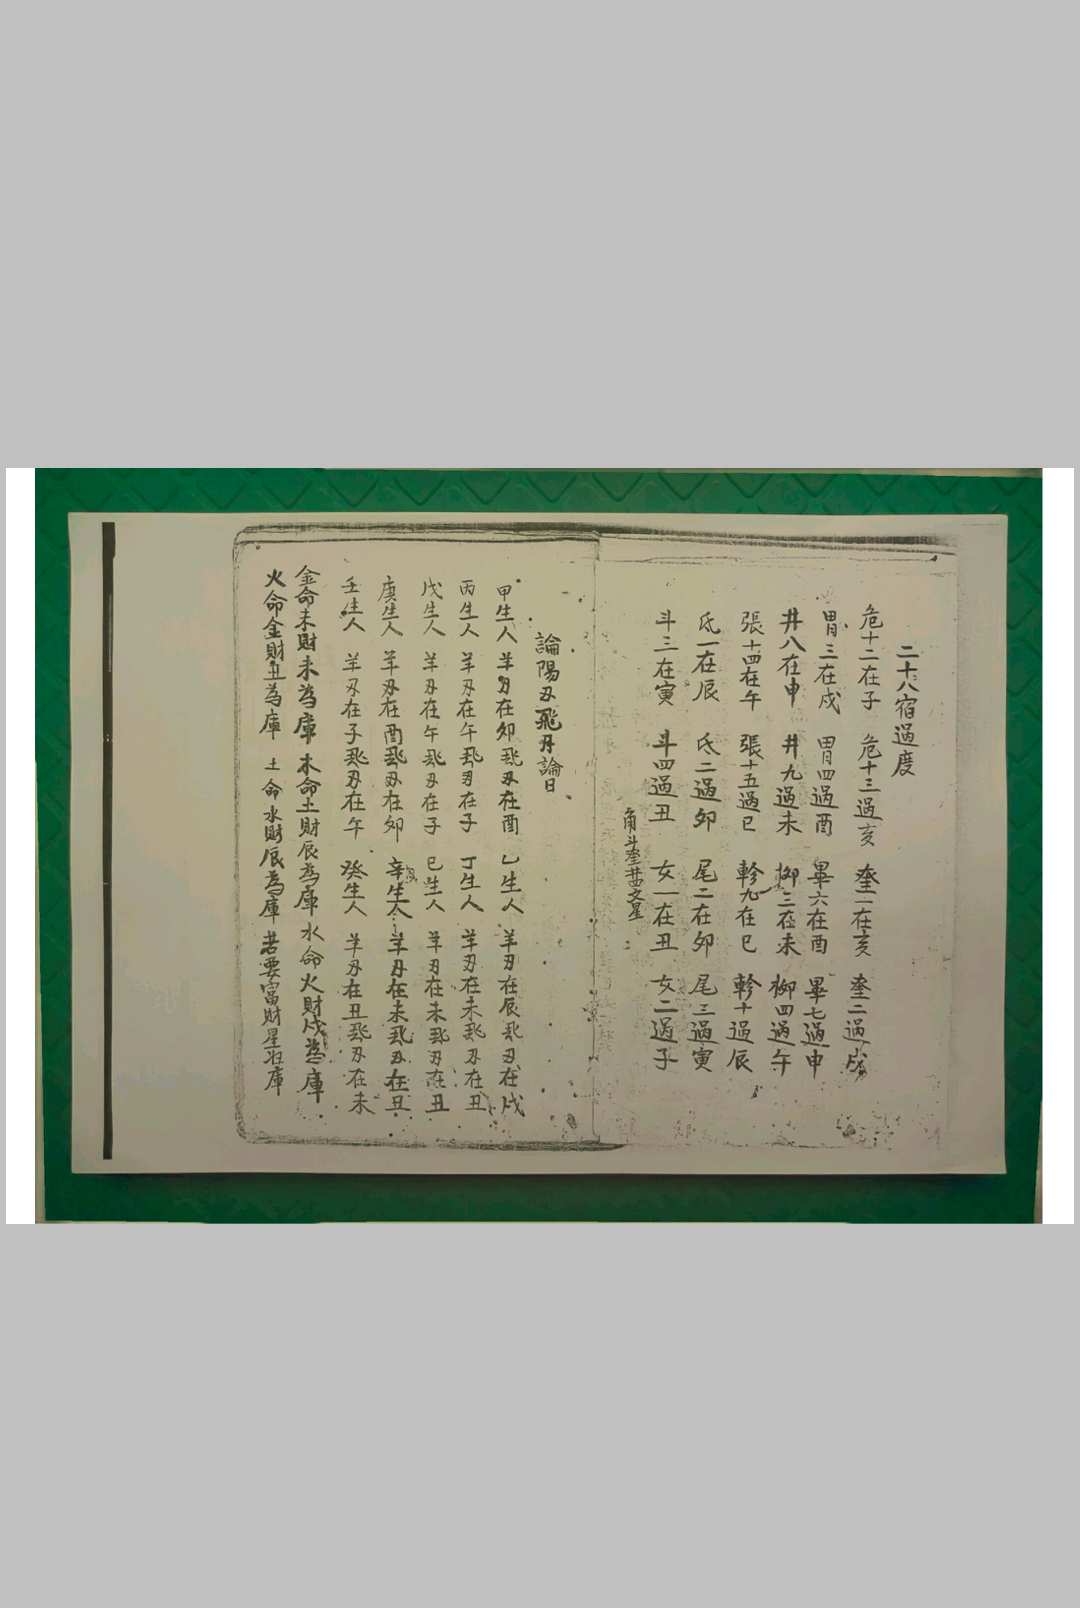 二十八宿過度
危十二在子 危十三過亥 奎一在亥 奎二過戌
胃三在戌 胃四過酉 畢六在酉 畢七過申
井八在申 井九過未 柳三在未 柳四過午
張十四在午 張十五過巳 軫九在巳 軫十過辰
氐一在辰 氐二過卯 尾二在卯 尾三過寅
斗三在寅 斗四過丑 女一在丑 女二過子
角斗奎井四文星
論陽刃飛刃論日
甲生人 羊刃在卯飛刃在酉 乙生人 羊刃在辰飛刃在戌
丙生人 羊刃在午飛刃在子 丁生人 羊刃在未飛刃在丑
戊生人 羊刃在午飛刃在子 巳生人 羊刃在未飛刃在丑
庚生人 羊刃在酉飛刃在卯 辛生人 羊刃在未飛刃在丑
壬生人 羊刃在子飛刃在午 癸生人 羊刃在丑飛刃在未
金命未財未為庫 木命土財辰為庫 水命火財戌為庫
火命金財丑為庫 土命水財辰為庫 若要富財星庫